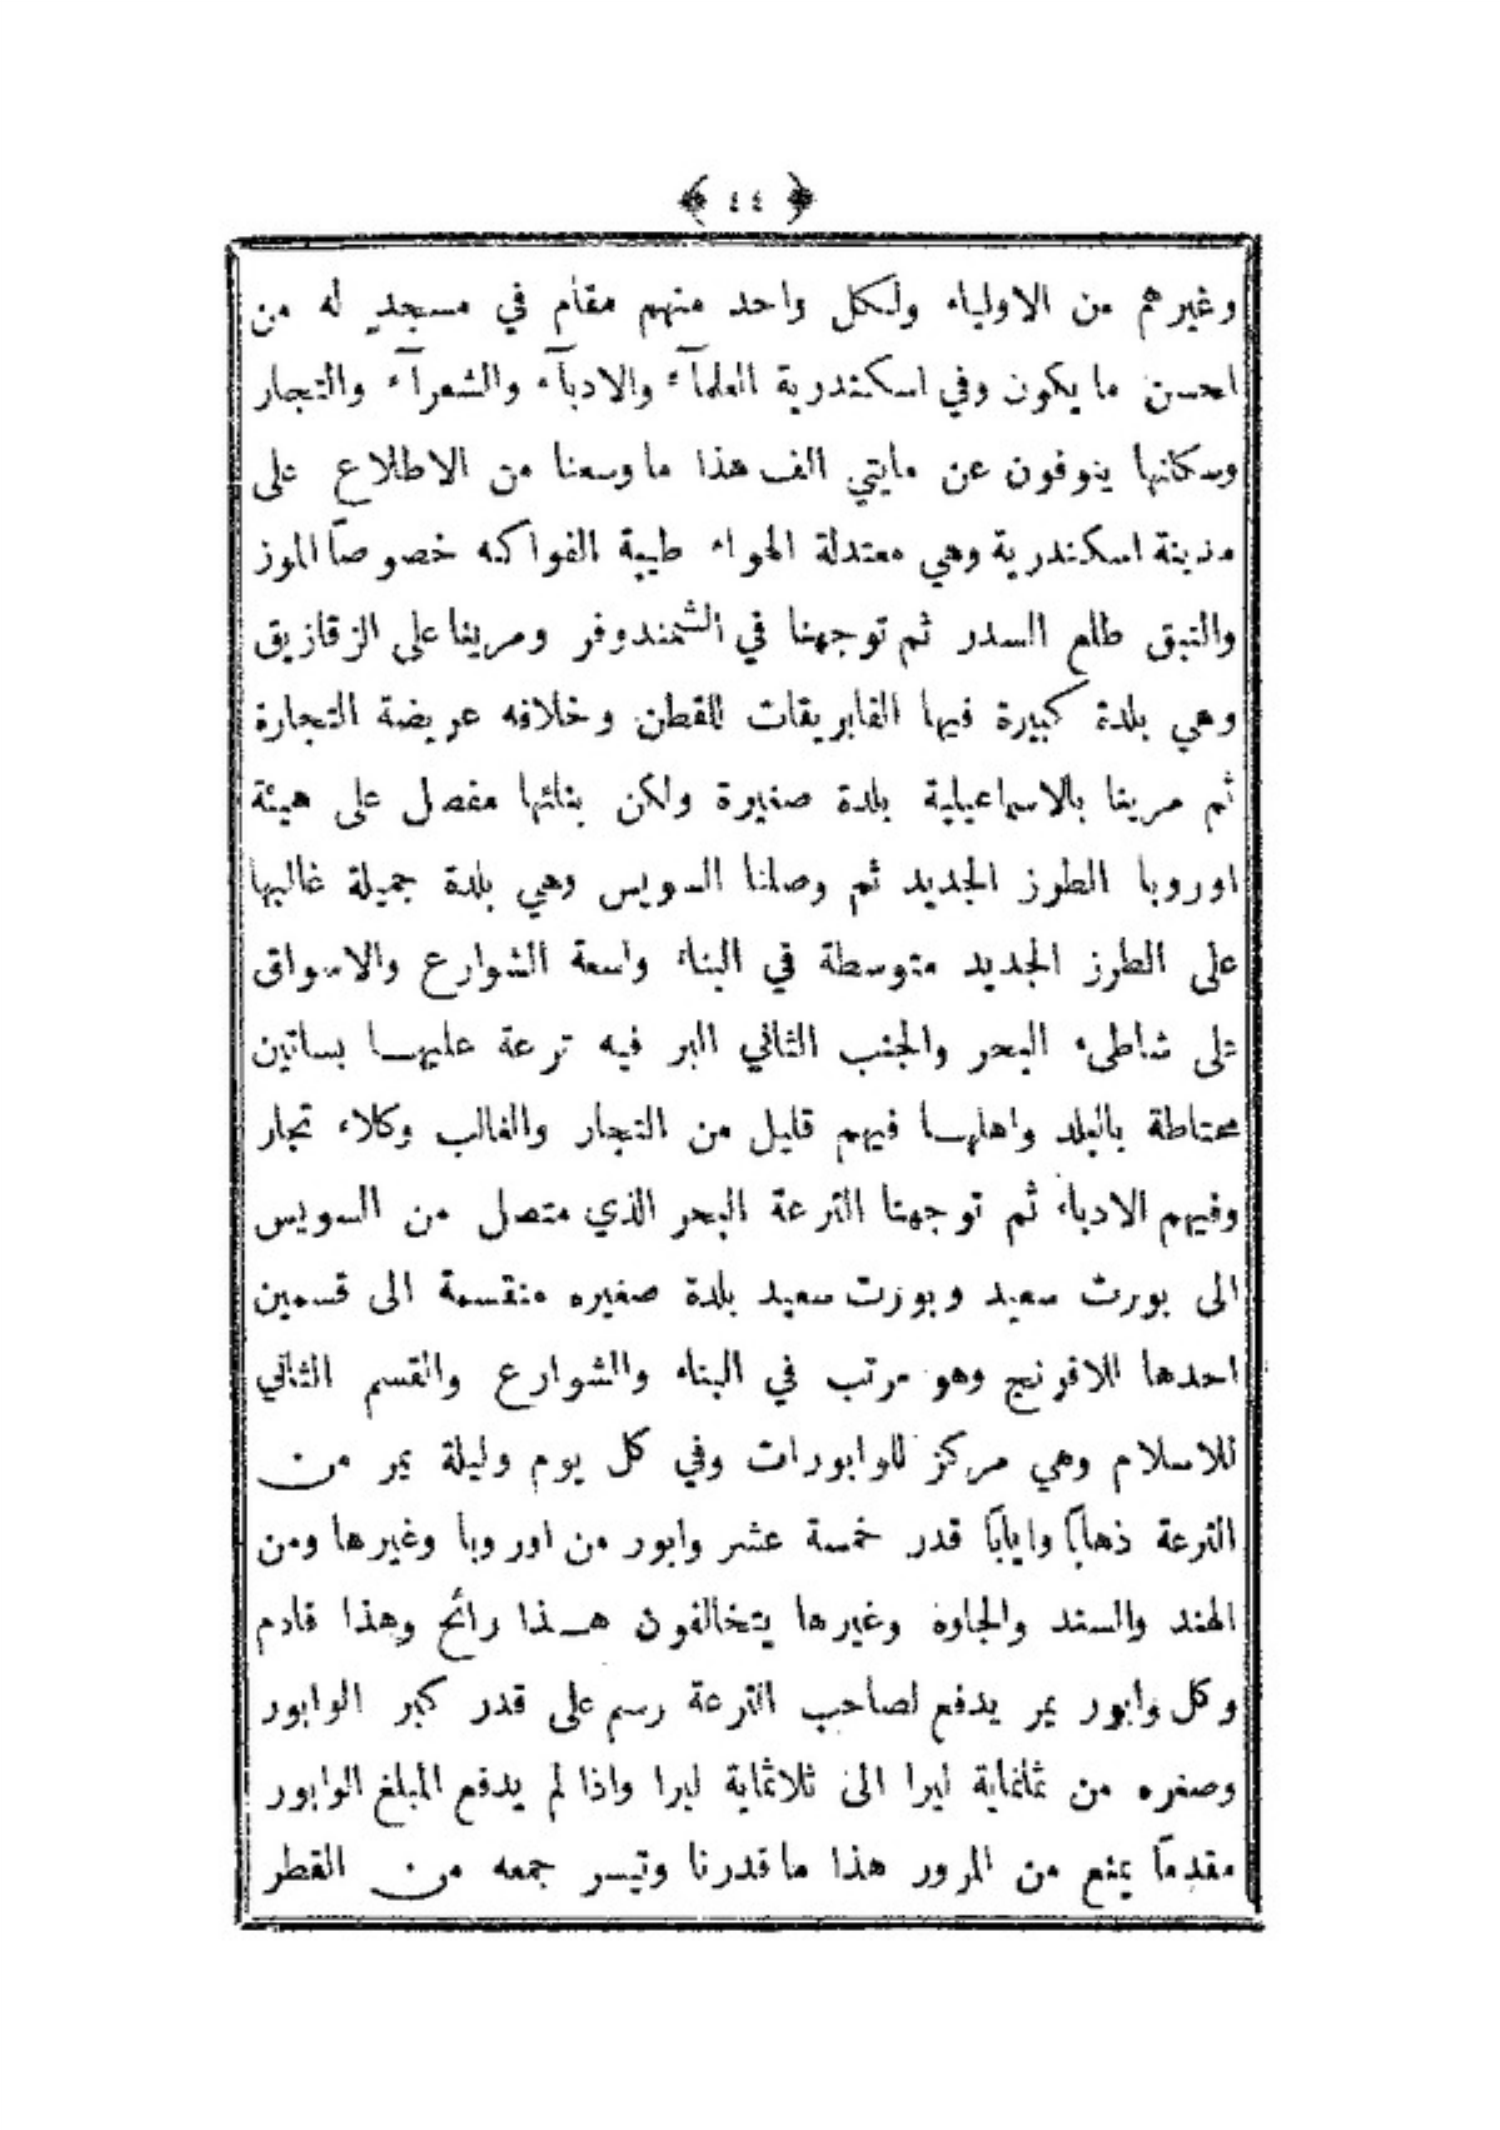 ﴿ ٤٤ ﴾
وغيرهم من الاولياء ولكل واحد منهم مقام في مسجدٍ له من
احسن ما يكون وفي اسكندرية العلمآء والادبآء والشعرآء والتجار
وسكانها ينوفون عن مايتي الف هذا ما وسعنا من الاطلاع على
مدينة اسكندرية وهي معتدلة الهواء طيبة الفواكه خصوصاً الموز
والنبق طلع السدر ثم توجهنا في الشمندوفر ومرينا على الزقازيق
وهي بلدة كبيرة فيها الفابريقات للقطن وخلافه عريضة التجارة
ثم مرينا بالاسماعيلية بلدة صغيرة ولكن بنائها مفصل على هيئة
اوروبا الطرز الجديد ثم وصلنا السويس وهي بلدة جميلة غالبها
على الطرز الجديد متوسطة في البناء واسعة الشوارع والاسواق
على شاطىء البحر والجنب الثاني البر فيه ترعة عليها بساتين
محتاطة بالبلد واهلها فيهم قليل من التجار والغالب وكلاء تجار
وفيهم الادباء ثم توجهنا الترعة البحر الذي متصل من السويس
الى بورت سعيد وبورت سعيد بلدة صغيره منقسمة الى قسمين
احدها للافرنج وهو مرتب في البناء والشوارع والقسم الثاني
للاسلام وهي مركز للوابورات وفي كل يوم وليلة يمر من
الترعة ذهاباً واياباً قدر خمسة عشر وابور من اوروبا وغيرها ومن
الهند والسند والجاوه وغيرها يتخالفون هذا رائح وهذا قادم
وكل وابور يمر يدفع لصاحب الترعة رسم على قدر كبر الوابور
وصغره من ثمانماية ليرا الى ثلاثماية ليرا واذا لم يدفع المبلغ الوابور
مقدماً يمنع من المرور هذا ما قدرنا وتيسر جمعه من القطر